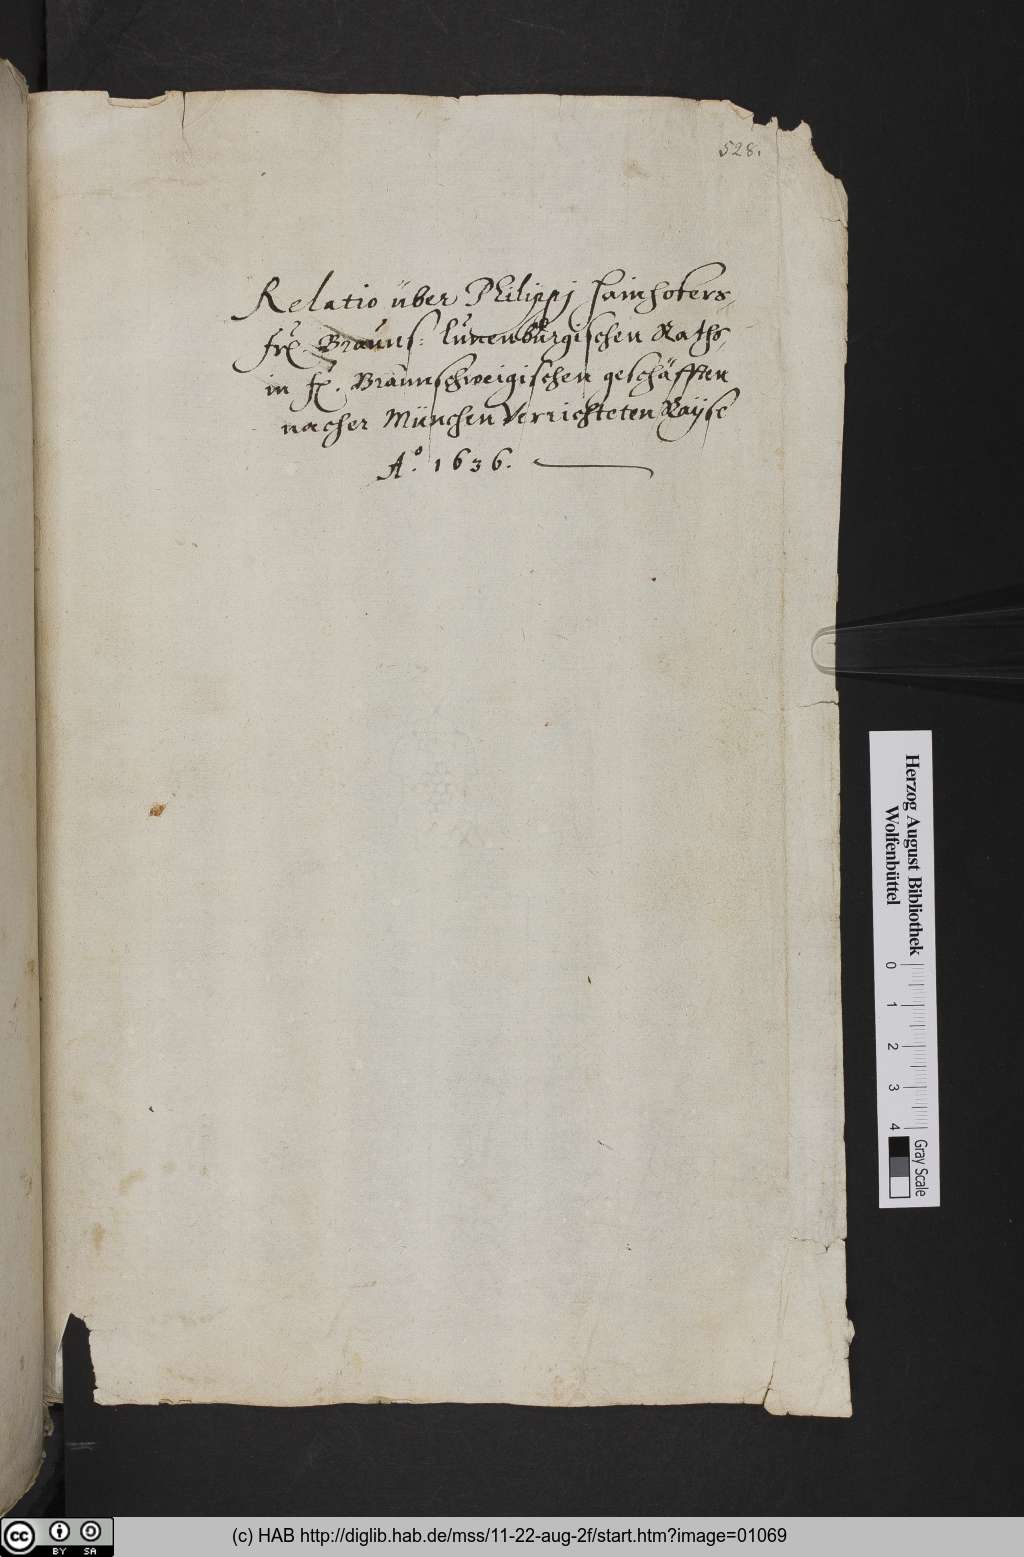 528.
Relatio über Philippj Hainhofers,
frl. Brauns: lünenbürgischen Raths,
in fl. Braunschweigischen geschäfften
nacher München Verrichteten Raÿse
Aº. 1636.
Herzog August Bibliothek
Wolfenbüttel
0 1 2 3 4
Gray Scale
(c) HAB http://diglib.hab.de/mss/11-22-aug-2f/start.htm?image=01069
cc BY SA